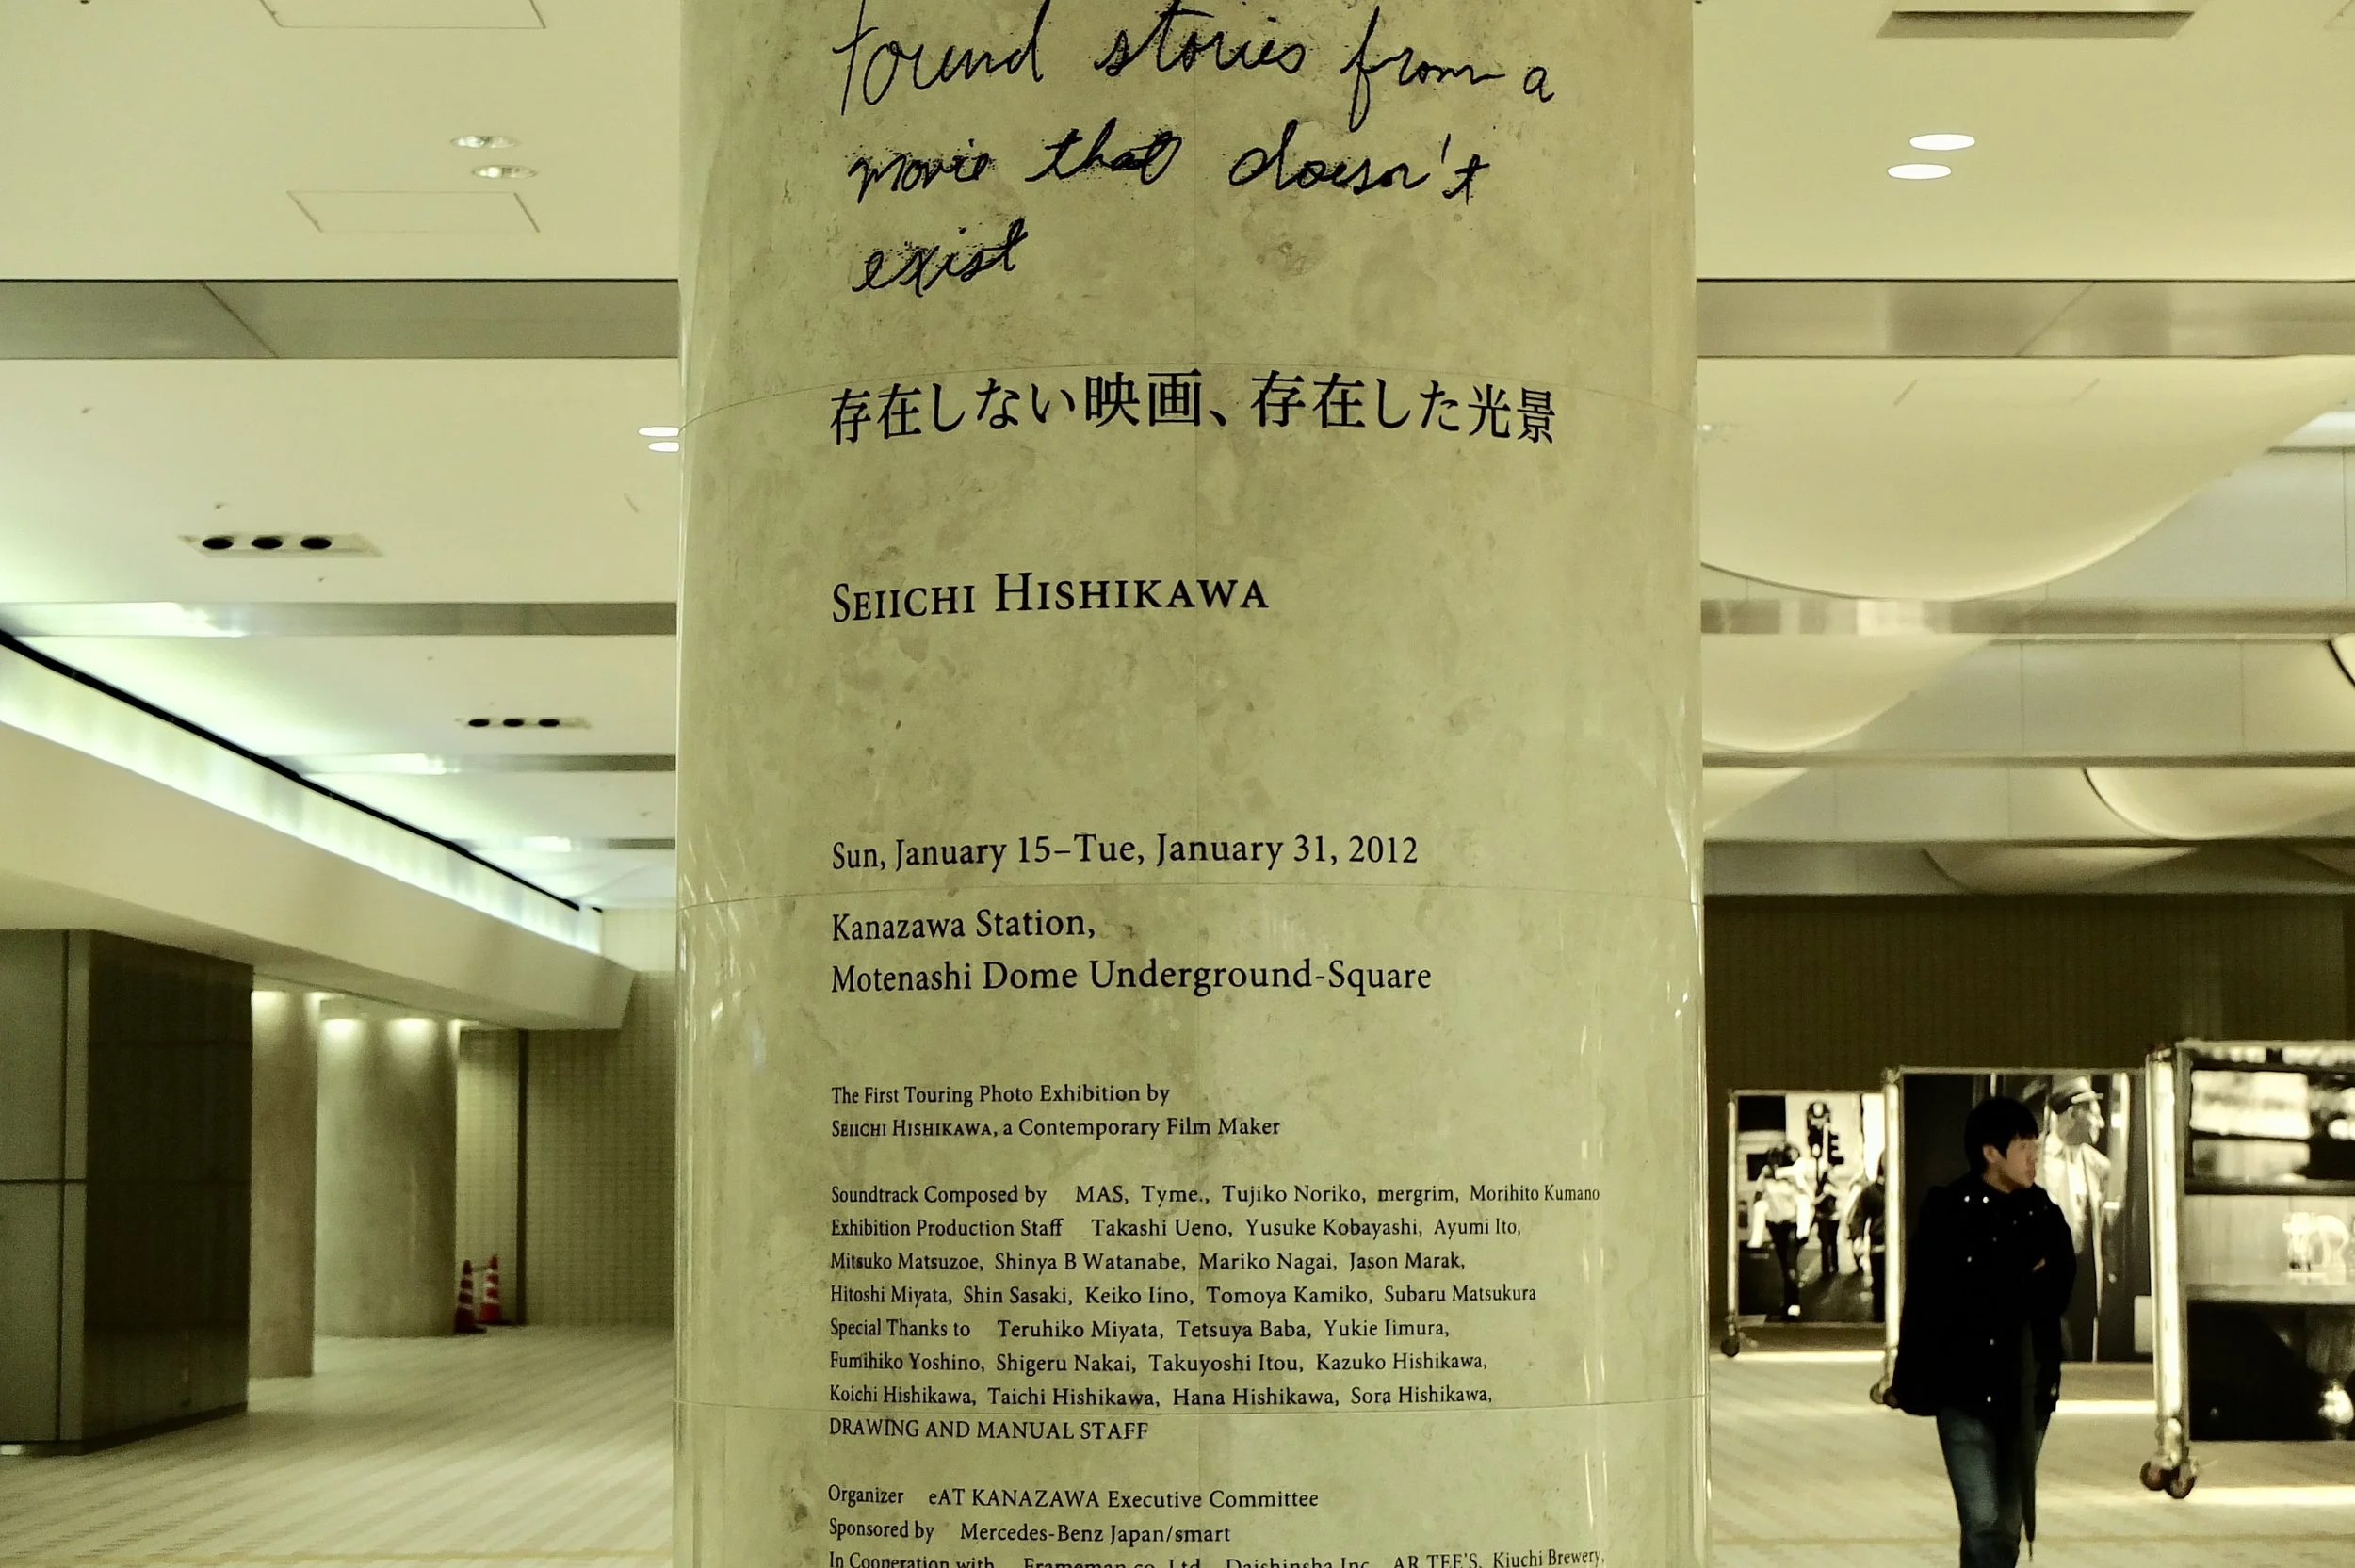 found stories from a
movie that doesn't
exist
存在しない映画、存在した光景
SEIICHI HISHIKAWA
Sun, January 15–Tue, January 31, 2012
Kanazawa Station,
Motenashi Dome Underground-Square
The First Touring Photo Exhibition by
SEIICHI HISHIKAWA, a Contemporary Film Maker
Soundtrack Composed by MAS, Tyme., Tujiko Noriko, mergrim, Morihito Kumano
Exhibition Production Staff Takashi Ueno, Yusuke Kobayashi, Ayumi Ito,
Mitsuko Matsuzoe, Shinya B Watanabe, Mariko Nagai, Jason Marak,
Hitoshi Miyata, Shin Sasaki, Keiko Iino, Tomoya Kamiko, Subaru Matsukura
Special Thanks to Teruhiko Miyata, Tetsuya Baba, Yukie Iimura,
Fumihiko Yoshino, Shigeru Nakai, Takuyoshi Itou, Kazuko Hishikawa,
Koichi Hishikawa, Taichi Hishikawa, Hana Hishikawa, Sora Hishikawa,
DRAWING AND MANUAL STAFF
Organizer eAT KANAZAWA Executive Committee
Sponsored by Mercedes-Benz Japan/smart
In Cooperation with Frameman co. Ltd., Daishinsha Inc., AR TEE'S, Kiuchi Brewery,